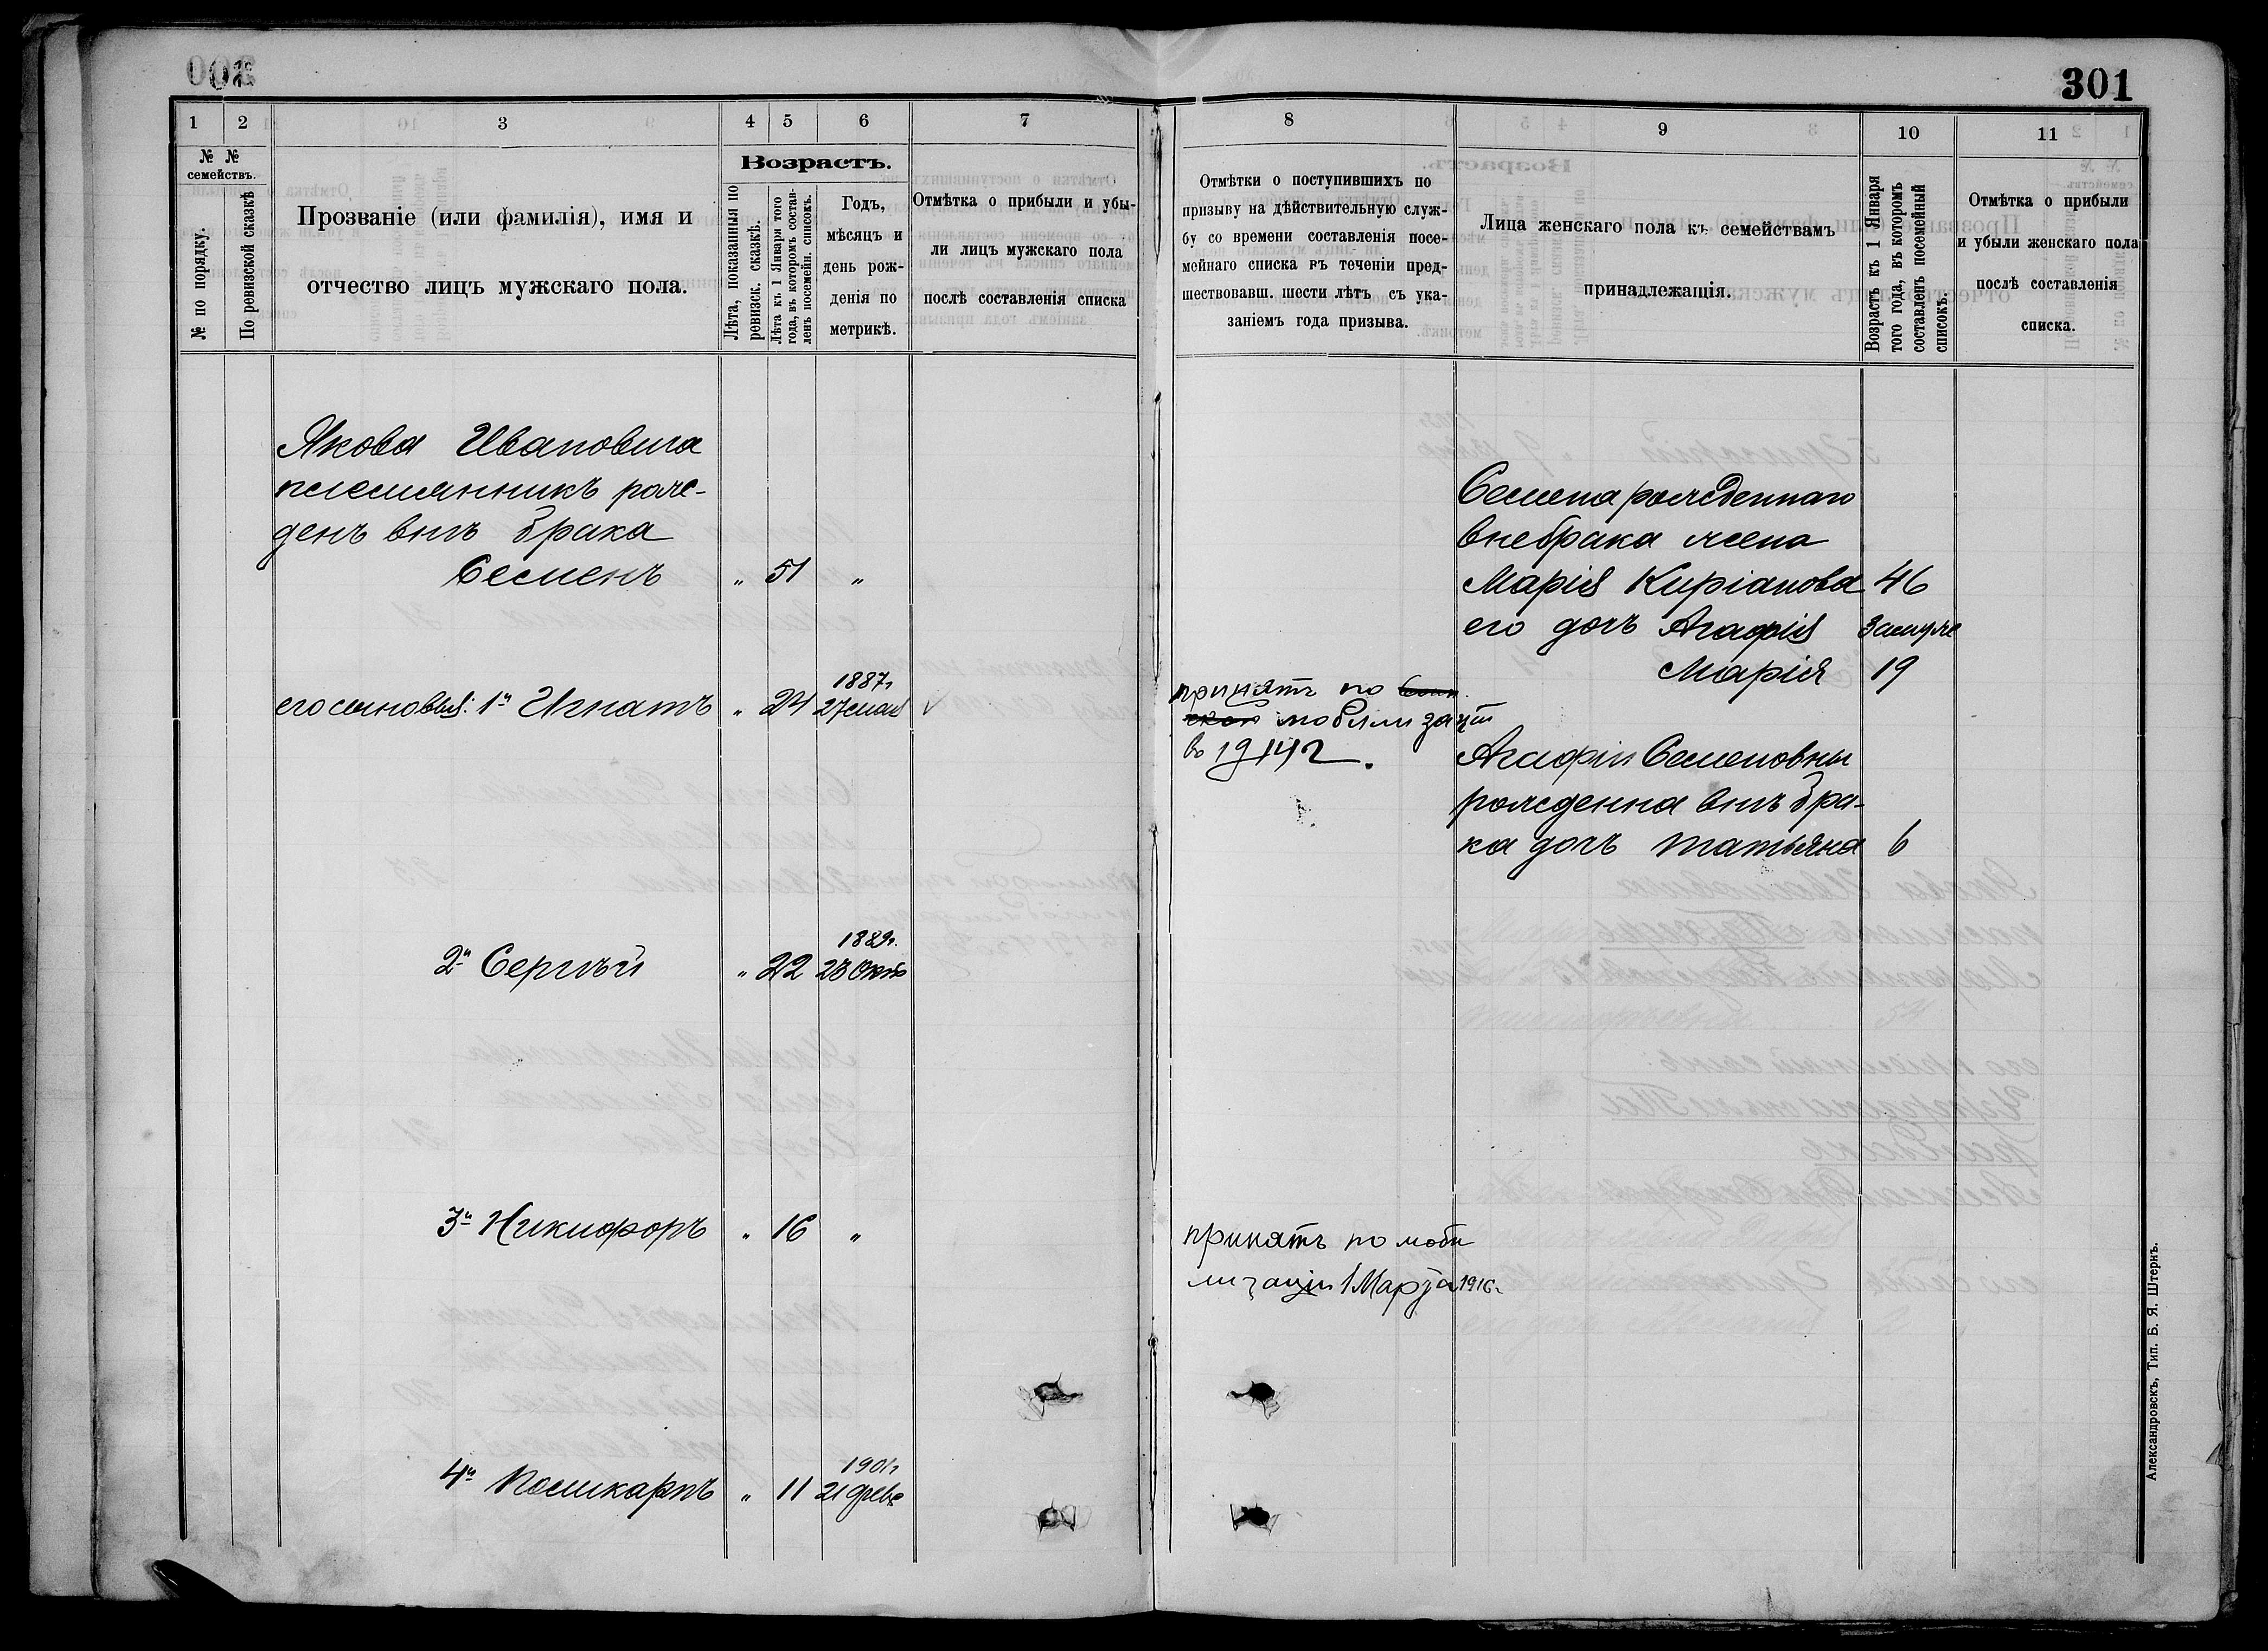 301
1 2 3 4 5 6 7
№ № семействъ.
№ по порядку.
По ревизской сказкѣ
Прозваніе (или фамилія), имя и
отчество лицъ мужскаго пола.
Возрастъ.
Лѣта, показанныя по
ревизск. сказкѣ.
Лѣта къ 1 Января того
года, въ которомъ состав-
ленъ посемейн. списокъ.
Годъ,
мѣсяцъ и
день рож-
денія по
метрикѣ.
Отмѣтка о прибыли и убы-
ли лицъ мужскаго пола
послѣ составленія списка
Якова Ивановича
племянникъ рож-
денъ внѣ брака
Семенъ „ 51 „
его сыновья: 1й Игнатъ „ 24 1887г
27 мая
2й Сергѣй „ 22 1889г.
23 Октб
3й Никифоръ „ 16 „
4й Поликарпъ „ 11 1901г
21 февр
8 9 10 11
Отмѣтки о поступившихъ по
призыву на дѣйствительную служ-
бу со времени составленія посе-
мейнаго списка въ теченіи пред-
шествовавш. шести лѣтъ съ ука-
заніемъ года призыва.
Лица женскаго пола къ семействамъ
принадлежащія.
Возрастъ къ 1 Января
того года, въ которомъ
составленъ посемейный
списокъ.
Отмѣтка о прибыли
и убыли женскаго пола
послѣ составленія
списка.
Семена рожденнаго
внебрака жена
Марія Киріанова 46
его дочь Агафія Замуже
Марія 19
принятъ по
мобилизаціи
въ 1914 г.
Агафіи Семеновны
рожденна внѣ бра-
ка дочь Татьяна 6
принятъ по моби
лизаціи 1 Марта 1916г
Александровскъ, Тип. Б. Я. Штернъ.